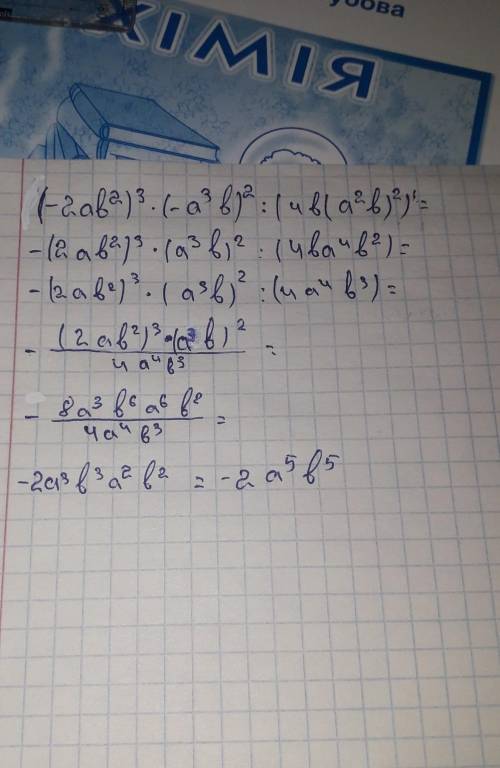 убова
ХІМІЯ
(-2ab²)³·(-a³b)²:(4b(a²b)²)¹=
-(2ab²)³·(a³b)²:(4ba⁴b²)=
-(2ab²)³·(a³b)²:(4a⁴b³)=
- (2ab²)³·(a³b)² / 4a⁴b³ =
- 8a³b⁶a⁶b² / 4a⁴b³ =
-2a³b³a²b² = -2a⁵b⁵